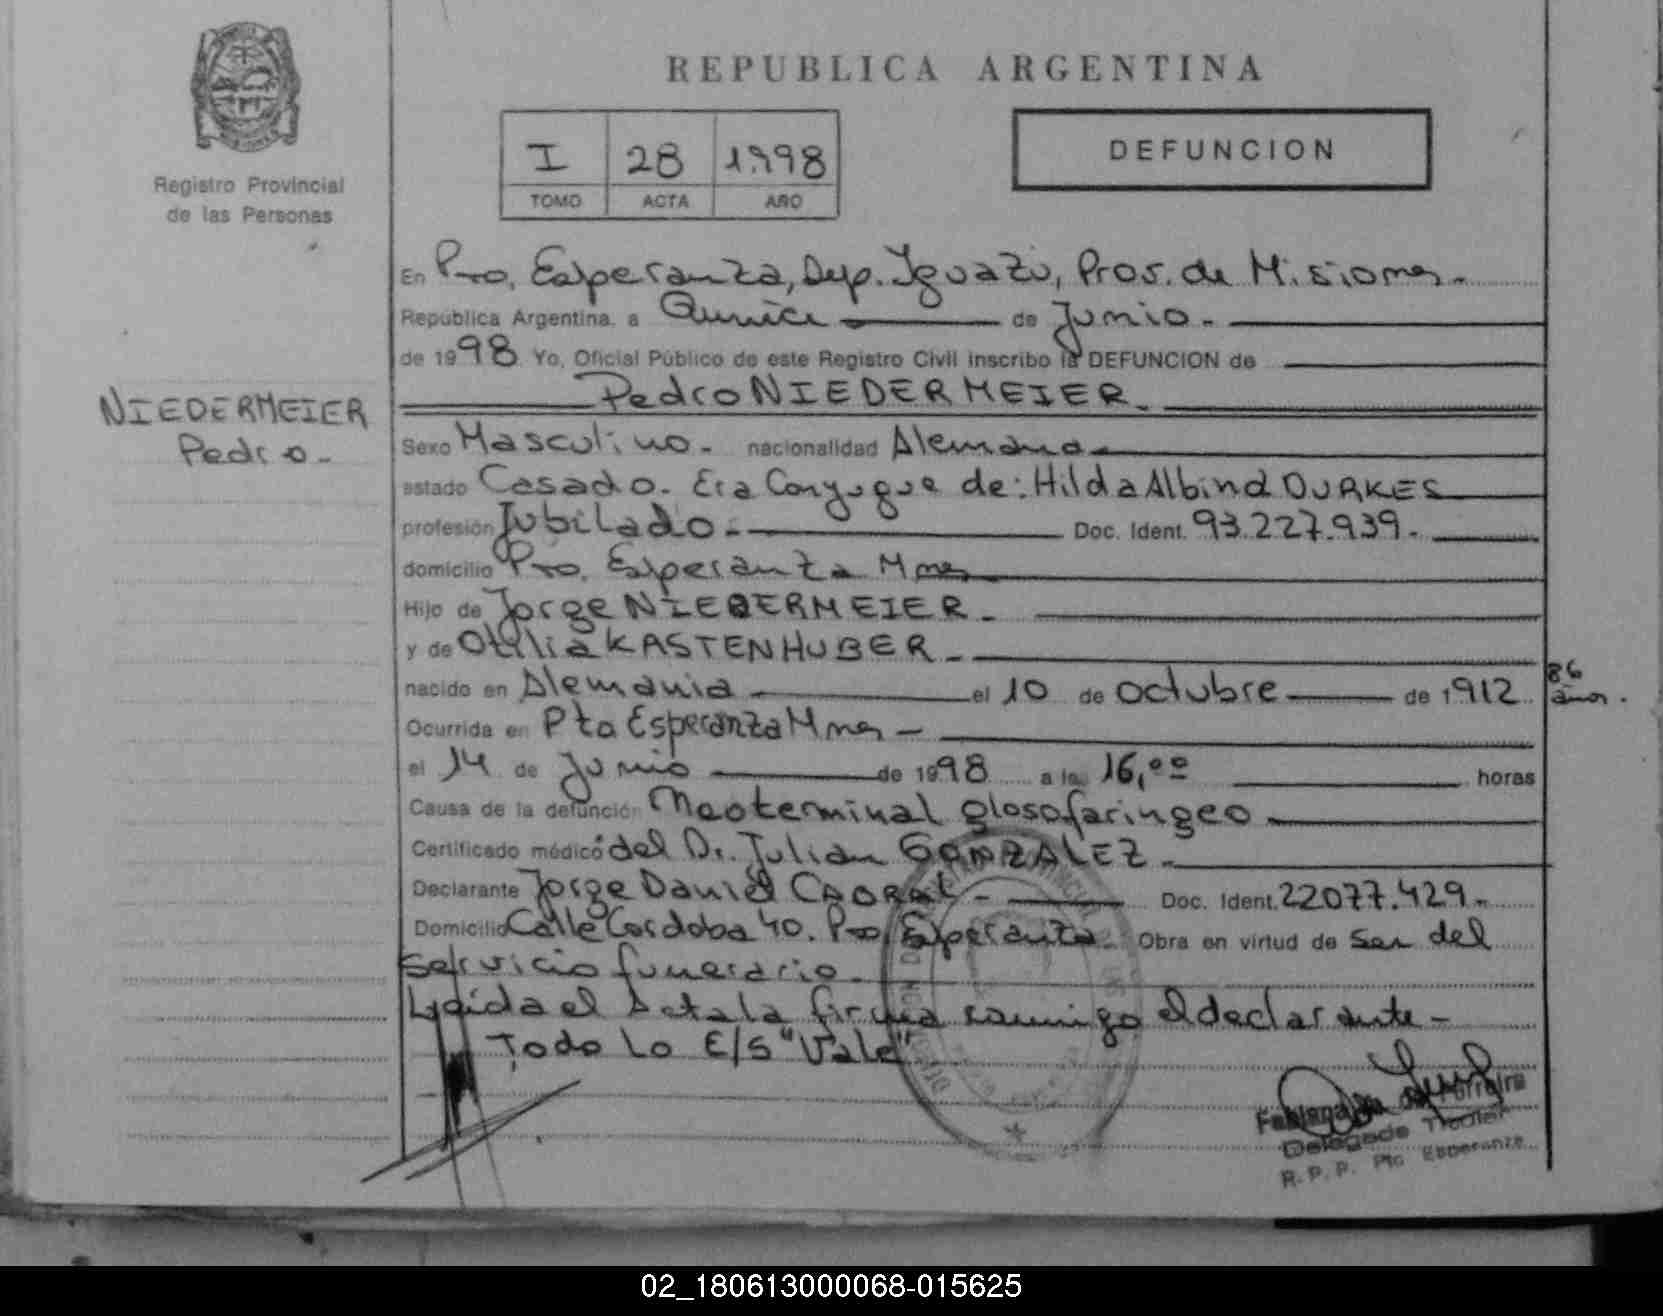 REPUBLICA ARGENTINA
I 28 1998
TOMO ACTA AÑO
DEFUNCION
Registro Provincial
de las Personas
En Pto. Esperanza, Dep. Iguazú, Prov. de Misiones.
República Argentina, a Quince de Junio.
de 1998 Yo, Oficial Público de este Registro Civil inscribo la DEFUNCION de
Pedro NIEDERMEIER.
NIEDERMEIER
Pedro.
Sexo Masculino. nacionalidad Alemana
estado Casado. Era Conyugue de: Hilda Albina DURKES
profesión Jubilado. Doc. Ident. 93.227.939.
domicilio Pto. Esperanza Mnes
Hijo de Jorge NIEDERMEIER.
y de Otilia KASTENHUBER.
nacido en Alemania el 10 de octubre de 1912 86 años.
Ocurrida en Pto Esperanza Mnes
el 14 de Junio de 1998 a las 16,00 horas
Causa de la defunción Neoterminal glosofaringeo
Certificado médico del Dr. Julian GONZALEZ.
Declarante Jorge Daniel CABRAL Doc. Ident. 22077.429.
Domicilio Calle Cordoba 40. Pto. Esperanza. Obra en virtud de Ser del
servicio funerario.
Leída el Acta la firma conmigo el declarante
Todo lo E/S "Vale"
Delegada Titular
R.P.P. Pto Esperanza
02_180613000068-015625